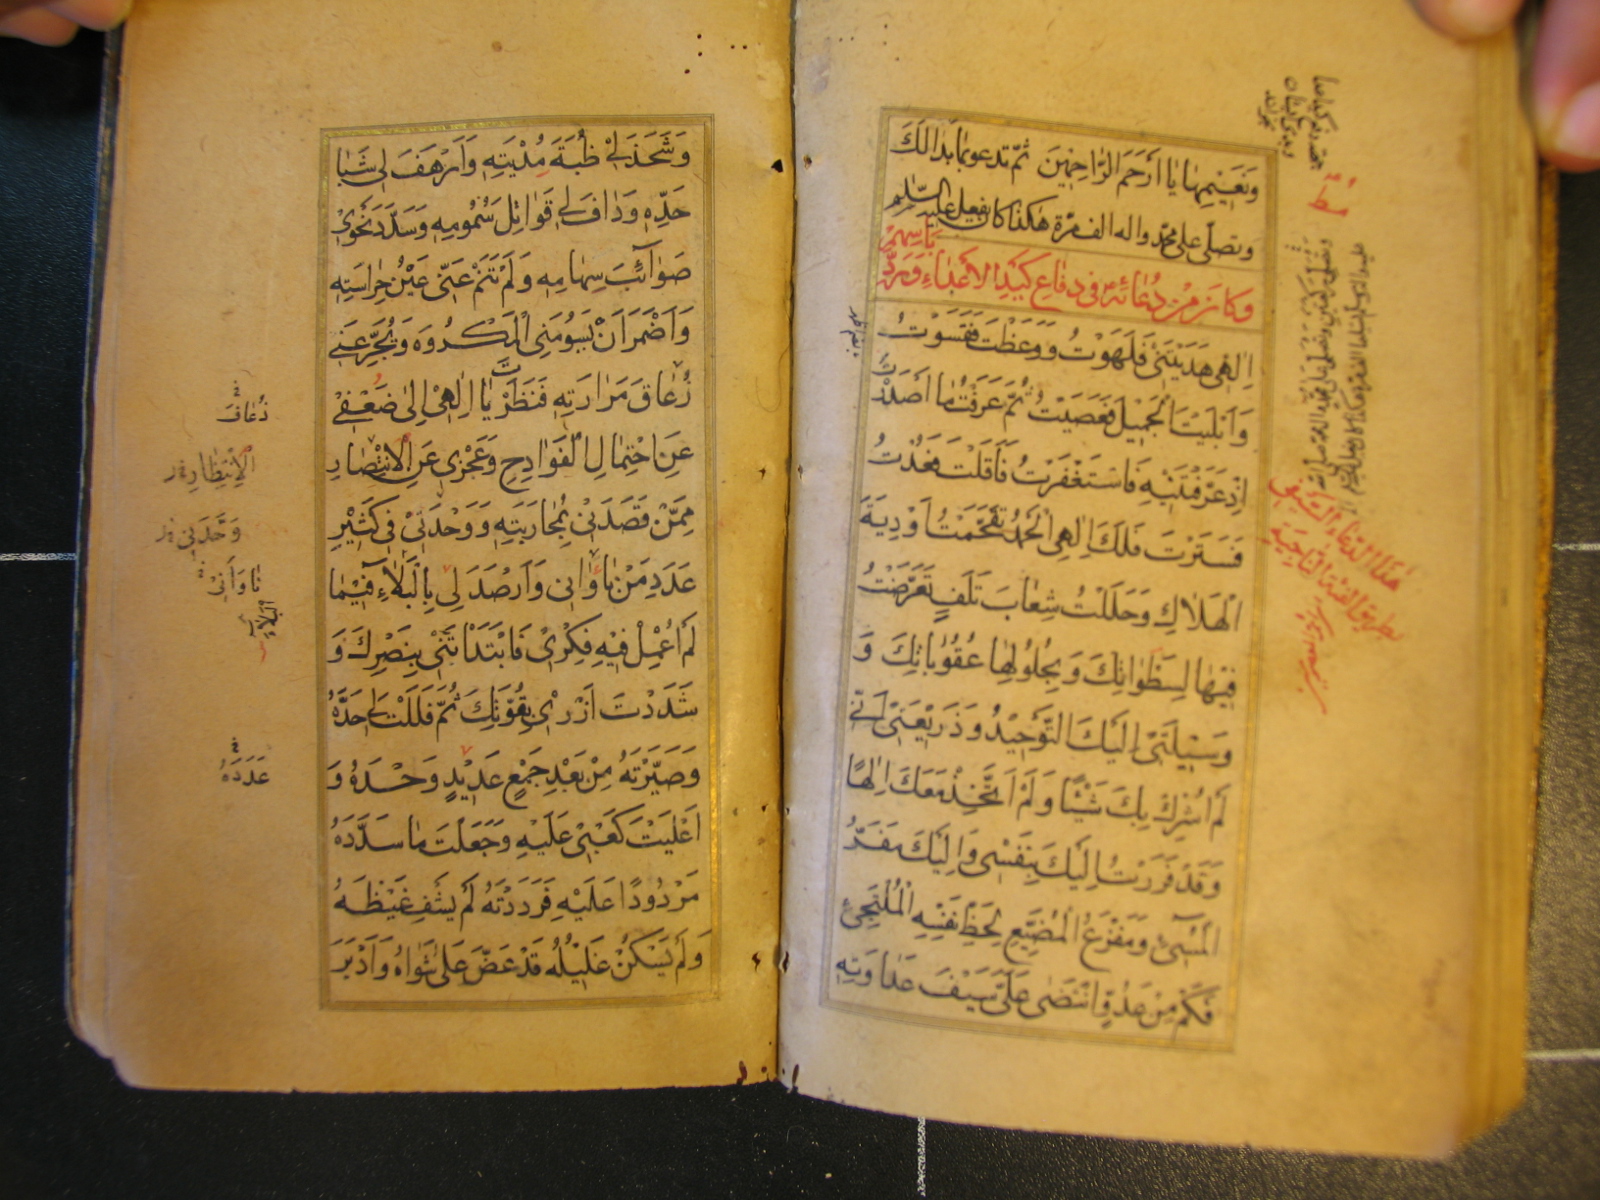 وَنَعِيمِهَا يَا أَرْحَمَ الرَّاحِمِينَ ثمّ تدعو بما بدا لك
وتصلّي على محمّد واله الف مرّة هكذا كان يفعل عليه السّلم
وَكَانَ مِنْ دُعَائِهِ فِي دِفَاعِ كَيْدِ الْأَعْدَاءِ وَرَدِّ
بَأْسِهِمْ
اِلٰهِي هَدَيْتَنِي فَلَهَوْتُ وَوَعَظْتَ فَقَسَوْتُ
وَاَبْلَيْتَ الْجَمِيلَ فَعَصَيْتُ ثُمَّ عَرَفْتُ مَا اَصْدَرْتَ
اِذْ عَرَّفْتَنِيهِ فَاسْتَغْفَرْتُ فَاَقَلْتَ فَعُدْتُ
فَسَتَرْتَ فَلَكَ اِلٰهِي الْحَمْدُ تَقَحَّمْتُ اَوْدِيَةَ
الْهَلَاكِ وَحَلَلْتُ شِعَابَ تَلَفٍ تَعَرَّضْتُ
فِيهَا لِسَطَوَاتِكَ وَبِحُلُولِهَا عُقُوبَاتِكَ وَ
وَسِيلَتِي اِلَيْكَ التَّوْحِيدُ وَذَرِيعَتِي اَنِّي
لَمْ اُشْرِكْ بِكَ شَيْئًا وَلَمْ اَتَّخِذْ مَعَكَ اِلٰهًا
وَقَدْ فَرَرْتُ اِلَيْكَ بِنَفْسِي وَاِلَيْكَ مَفَرُّ
الْمُسِيءِ وَمَفْزَعُ الْمُضَيِّعِ لِحَظِّ نَفْسِهِ الْمُلْتَجِئِ
فَكَمْ مِنْ عَدُوٍّ انْتَضَى عَلَيَّ سَيْفَ عَدَاوَتِهِ
هٰذَا الدُّعَاءُ
وَشَحَذَ لِي ظُبَةَ مُدْيَتِهِ وَاَرْهَفَ لِي شَبَا
حَدِّهِ وَدَافَ لِي قَوَاتِلَ سُمُومِهِ وَسَدَّدَ نَحْوِي
صَوَائِبَ سِهَامِهِ وَلَمْ تَنَمْ عَنِّي عَيْنُ حِرَاسَتِهِ
وَاَضْمَرَ اَنْ يَسُومَنِي الْمَكْرُوهَ وَيُجَرِّعَنِي
زُعَاقَ مَرَارَتِهِ فَنَظَرْتَ يَا اِلٰهِي اِلَى ضَعْفِي
عَنِ احْتِمَالِ الْفَوَادِحِ وَعَجْزِي عَنِ الْاِنْتِصَارِ
مِمَّنْ قَصَدَنِي بِمُحَارَبَتِهِ وَوَحْدَتِي فِي كَثِيرِ
عَدَدِ مَنْ نَاوَانِي وَاَرْصَدَ لِي بِالْبَلَاءِ فِيمَا
لَمْ اُعْمِلْ فِيهِ فِكْرِي فَابْتَدَاْتَنِي بِنَصْرِكَ وَ
شَدَدْتَ اَزْرِي بِقُوَّتِكَ ثُمَّ فَلَلْتَ لِي حَدَّهُ
وَصَيَّرْتَهُ مِنْ بَعْدِ جَمْعٍ عَدِيدٍ وَحْدَهُ وَ
اَعْلَيْتَ كَعْبِي عَلَيْهِ وَجَعَلْتَ مَا سَدَّدَهُ
مَرْدُودًا عَلَيْهِ فَرَدَدْتَهُ لَمْ يَشْفِ غَيْظَهُ
وَلَمْ يَسْكُنْ غَلِيلُهُ قَدْ عَضَّ عَلَى شَوَاهُ وَاَدْبَرَ
ذُعَافَ
الْاِنْتِظَارِ
وَحَّدَنِي
نَاوَاَنِي
الْبَلَاءِ
عَدَدُهُ